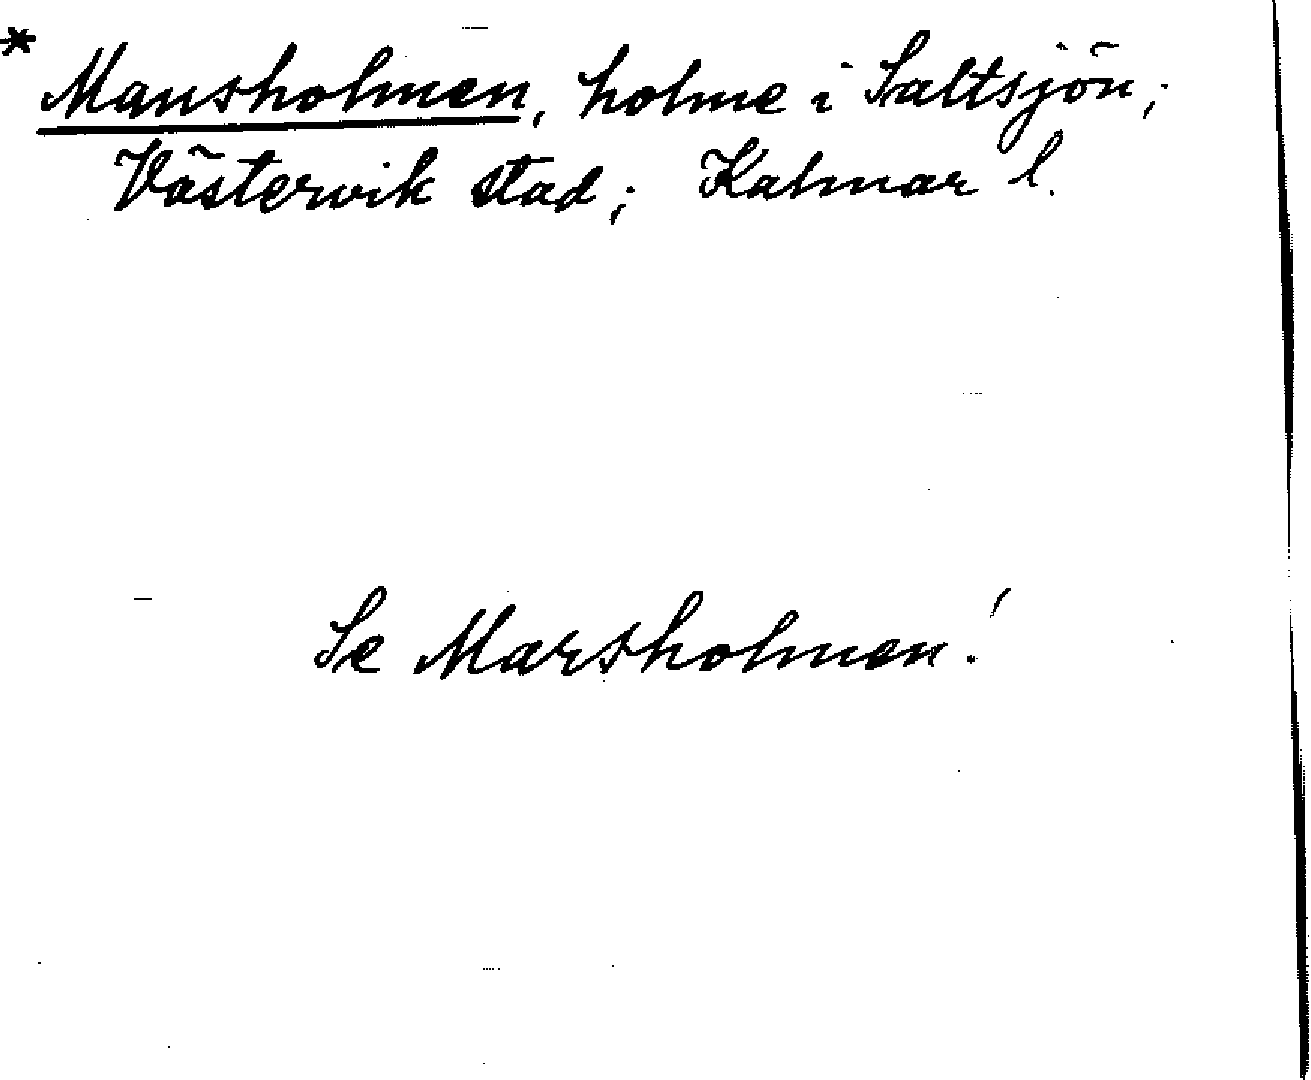 * Mansholmen, holme i Saltsjön;
Västervik stad; Kalmar l.
Se Marsholmen!